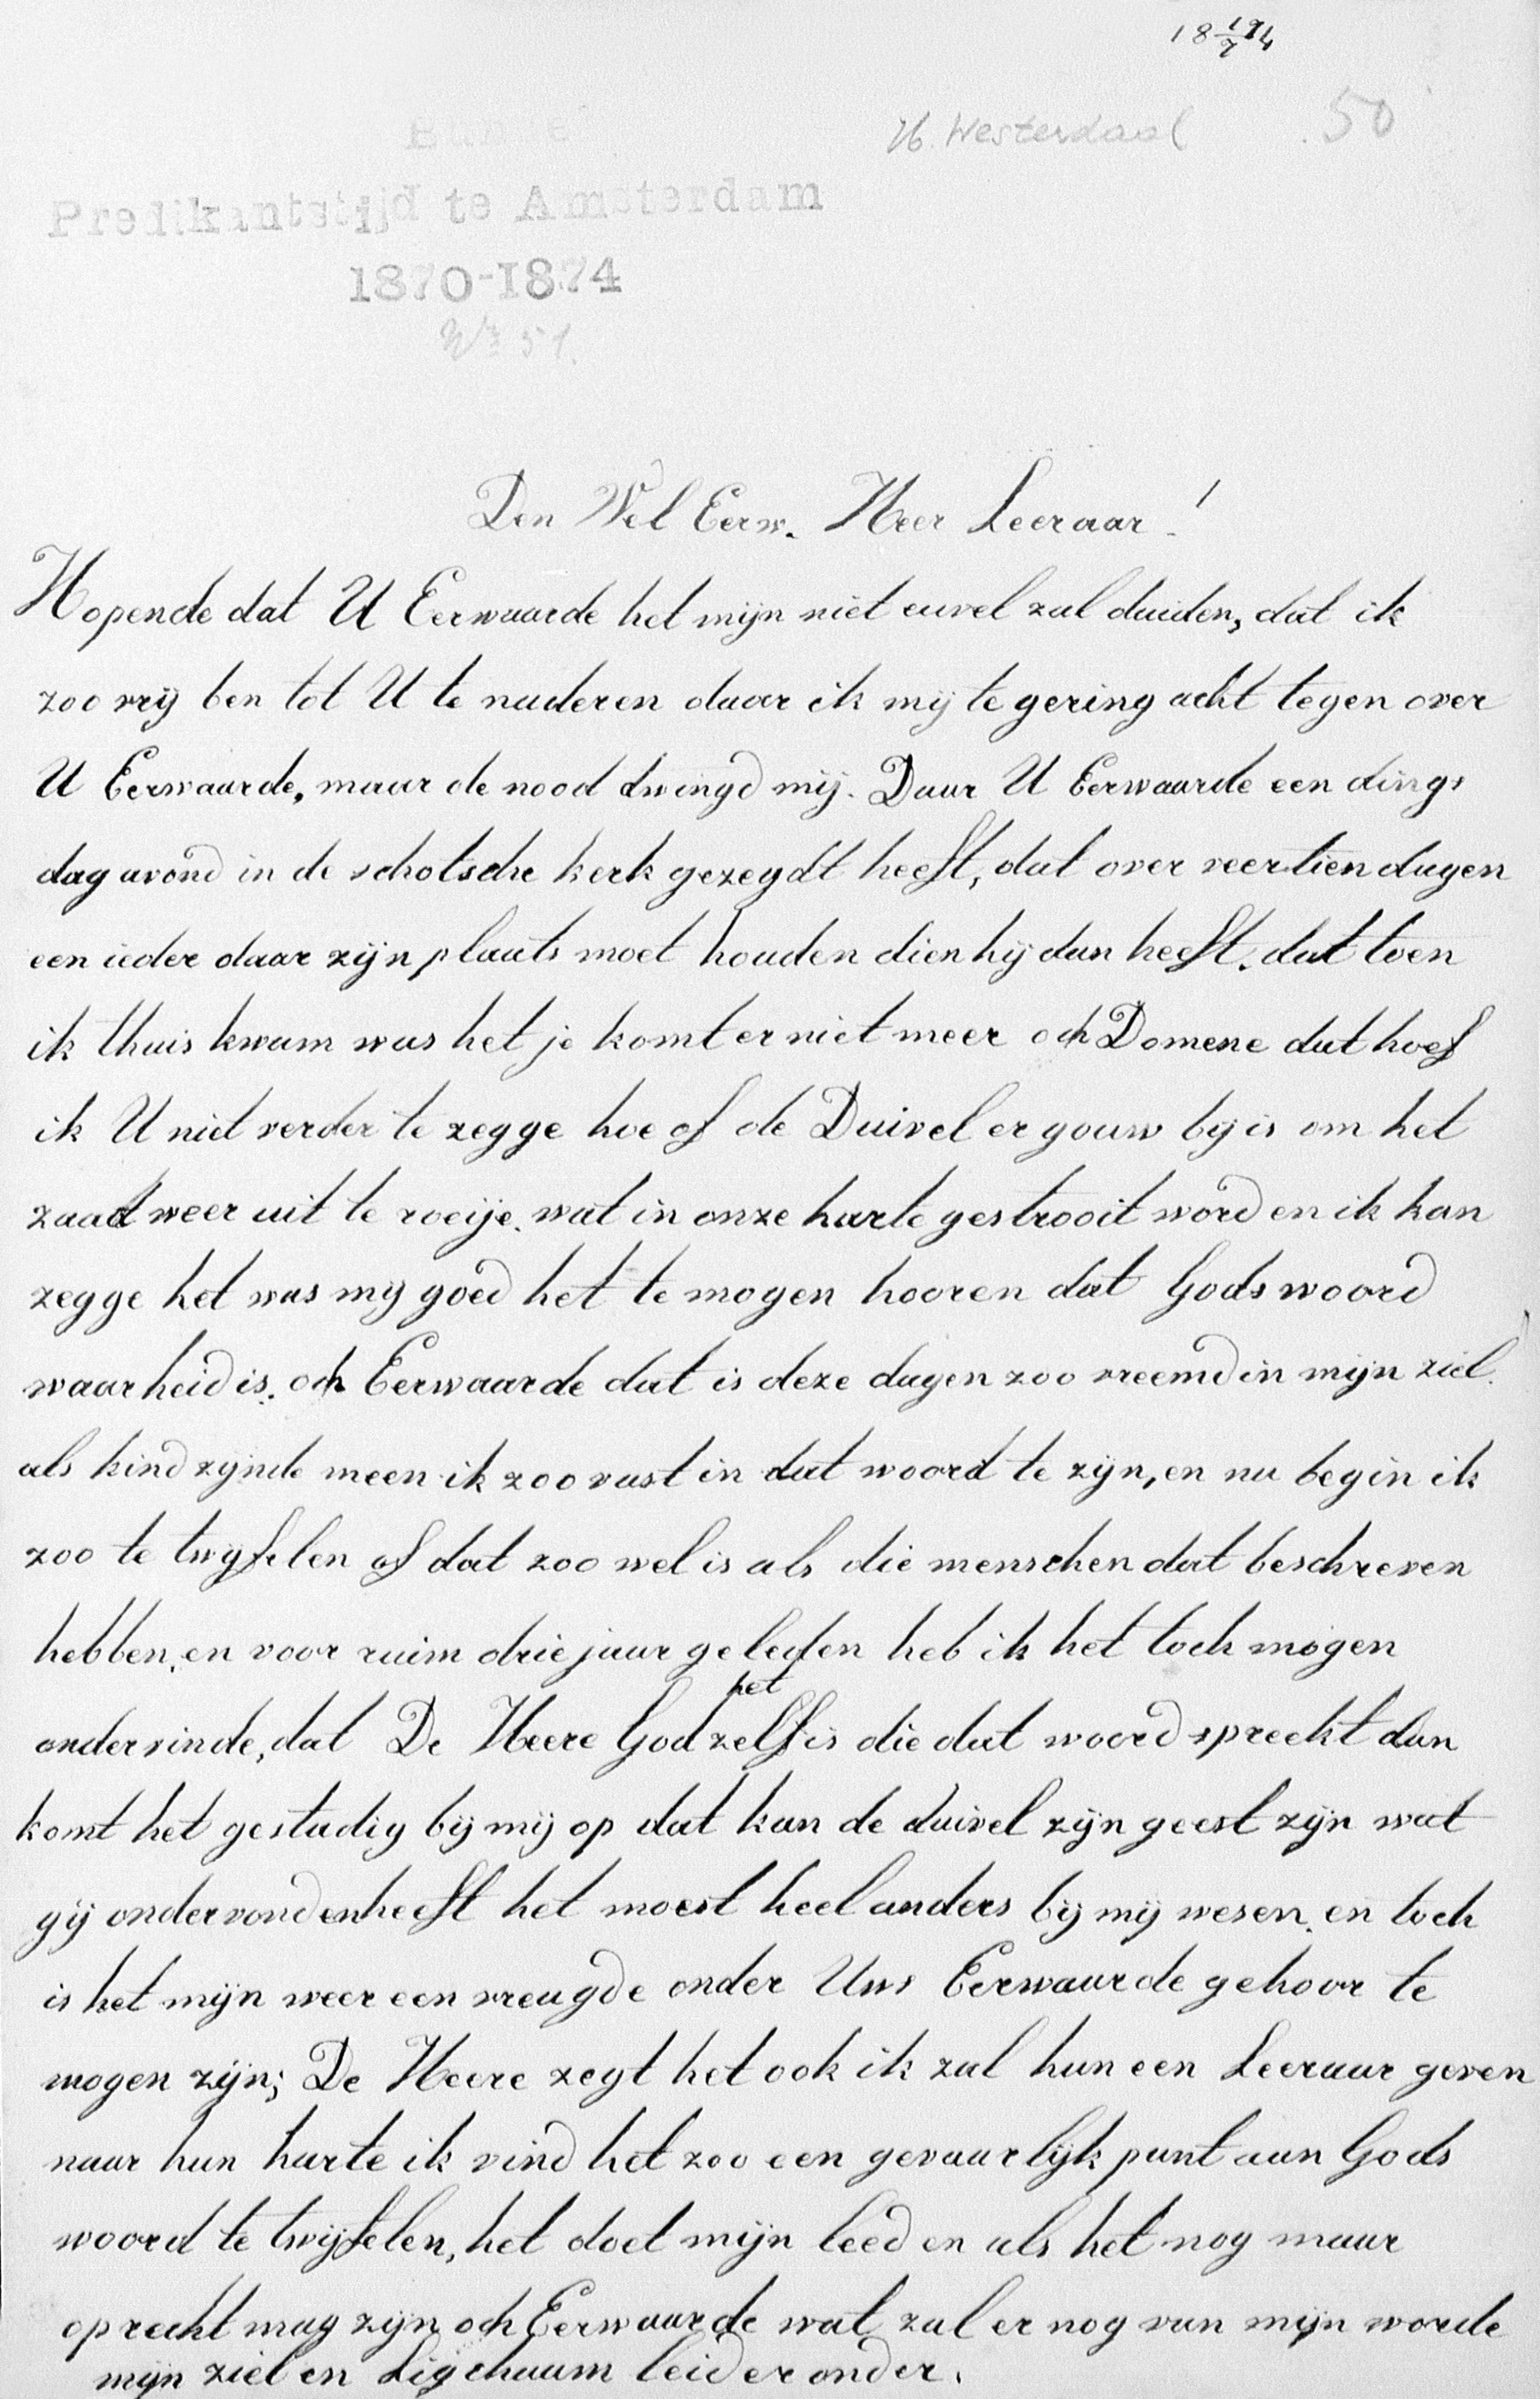 18 19/7 74
H. Westerdaal 50
Predikantstijd te Amsterdam
1870-1874
No 51.
Den Wel Eerw. Heer Leeraar!
Hopende dat U Eerwaarde het mijn niet euvel zal duiden, dat ik
zoo vrij ben tot U te naderen daar ik mij te gering acht tegen over
U Eerwaarde, maar de nood dwingd mij. Daar U Eerwaarde een dings
dag avond in de schotsche kerk gezegdt heeft, dat over veertien dagen
een ieder daar zijn plaats moet houden dien hij dan heeft. dat toen
ik thuis kwam was het je komt er niet meer och Domene dat hoef
ik U niet verder te zegge hoe of de Duivel er gouw bij is om het
zaad weer uit te roeije. wat in onze harte gestrooit word en ik kan
zegge het was mij goed het te mogen hooren dat Gods woord
waarheid is. och Eerwaarde dat is deze dagen zoo vreemd in mijn ziel.
als kind zijnde meen ik zoo vast in dat woord te zijn, en nu begin ik
zoo te twijfelen of dat zoo wel is als die menschen dat beschreven
hebben. en voor ruim drie jaar geleden heb ik het toch mogen
ondervinde, dat De Heere God het zelf is die dat woord spreekt dan
komt het gestadig bij mij op dat kan de duivel zijn geest zijn wat
gij ondervonden heeft het moest heel anders bij mij wesen. en toch
is het mijn weer een vreugde onder Uws Eerwaarde gehoor te
mogen zijn; De Heere zegt het ook ik zal hun een Leeraar geven
naar hun harte ik vind het zoo een gevaarlijk punt aan Gods
woord te twijfelen, het doet mijn leed en als het nog maar
oprecht mag zijn och Eerwaarde wat zal er nog van mijn worde
mijn ziel en Ligchaam leid er onder.